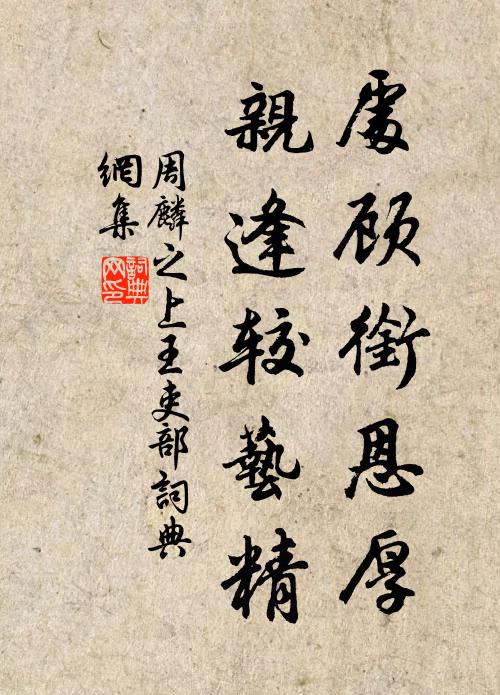 顾銜恩厚
親逢较藝精
周麟之上王吏部詞典
網集
詞典
网印